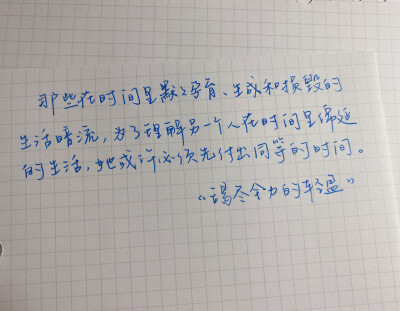 那些在时间里默默孕育、生成和损毁的
生活暗流，为了理解另一个人在时间里绵延
的生活，她或许必须先付出同等的时间。
“竭尽余力的轻盈”